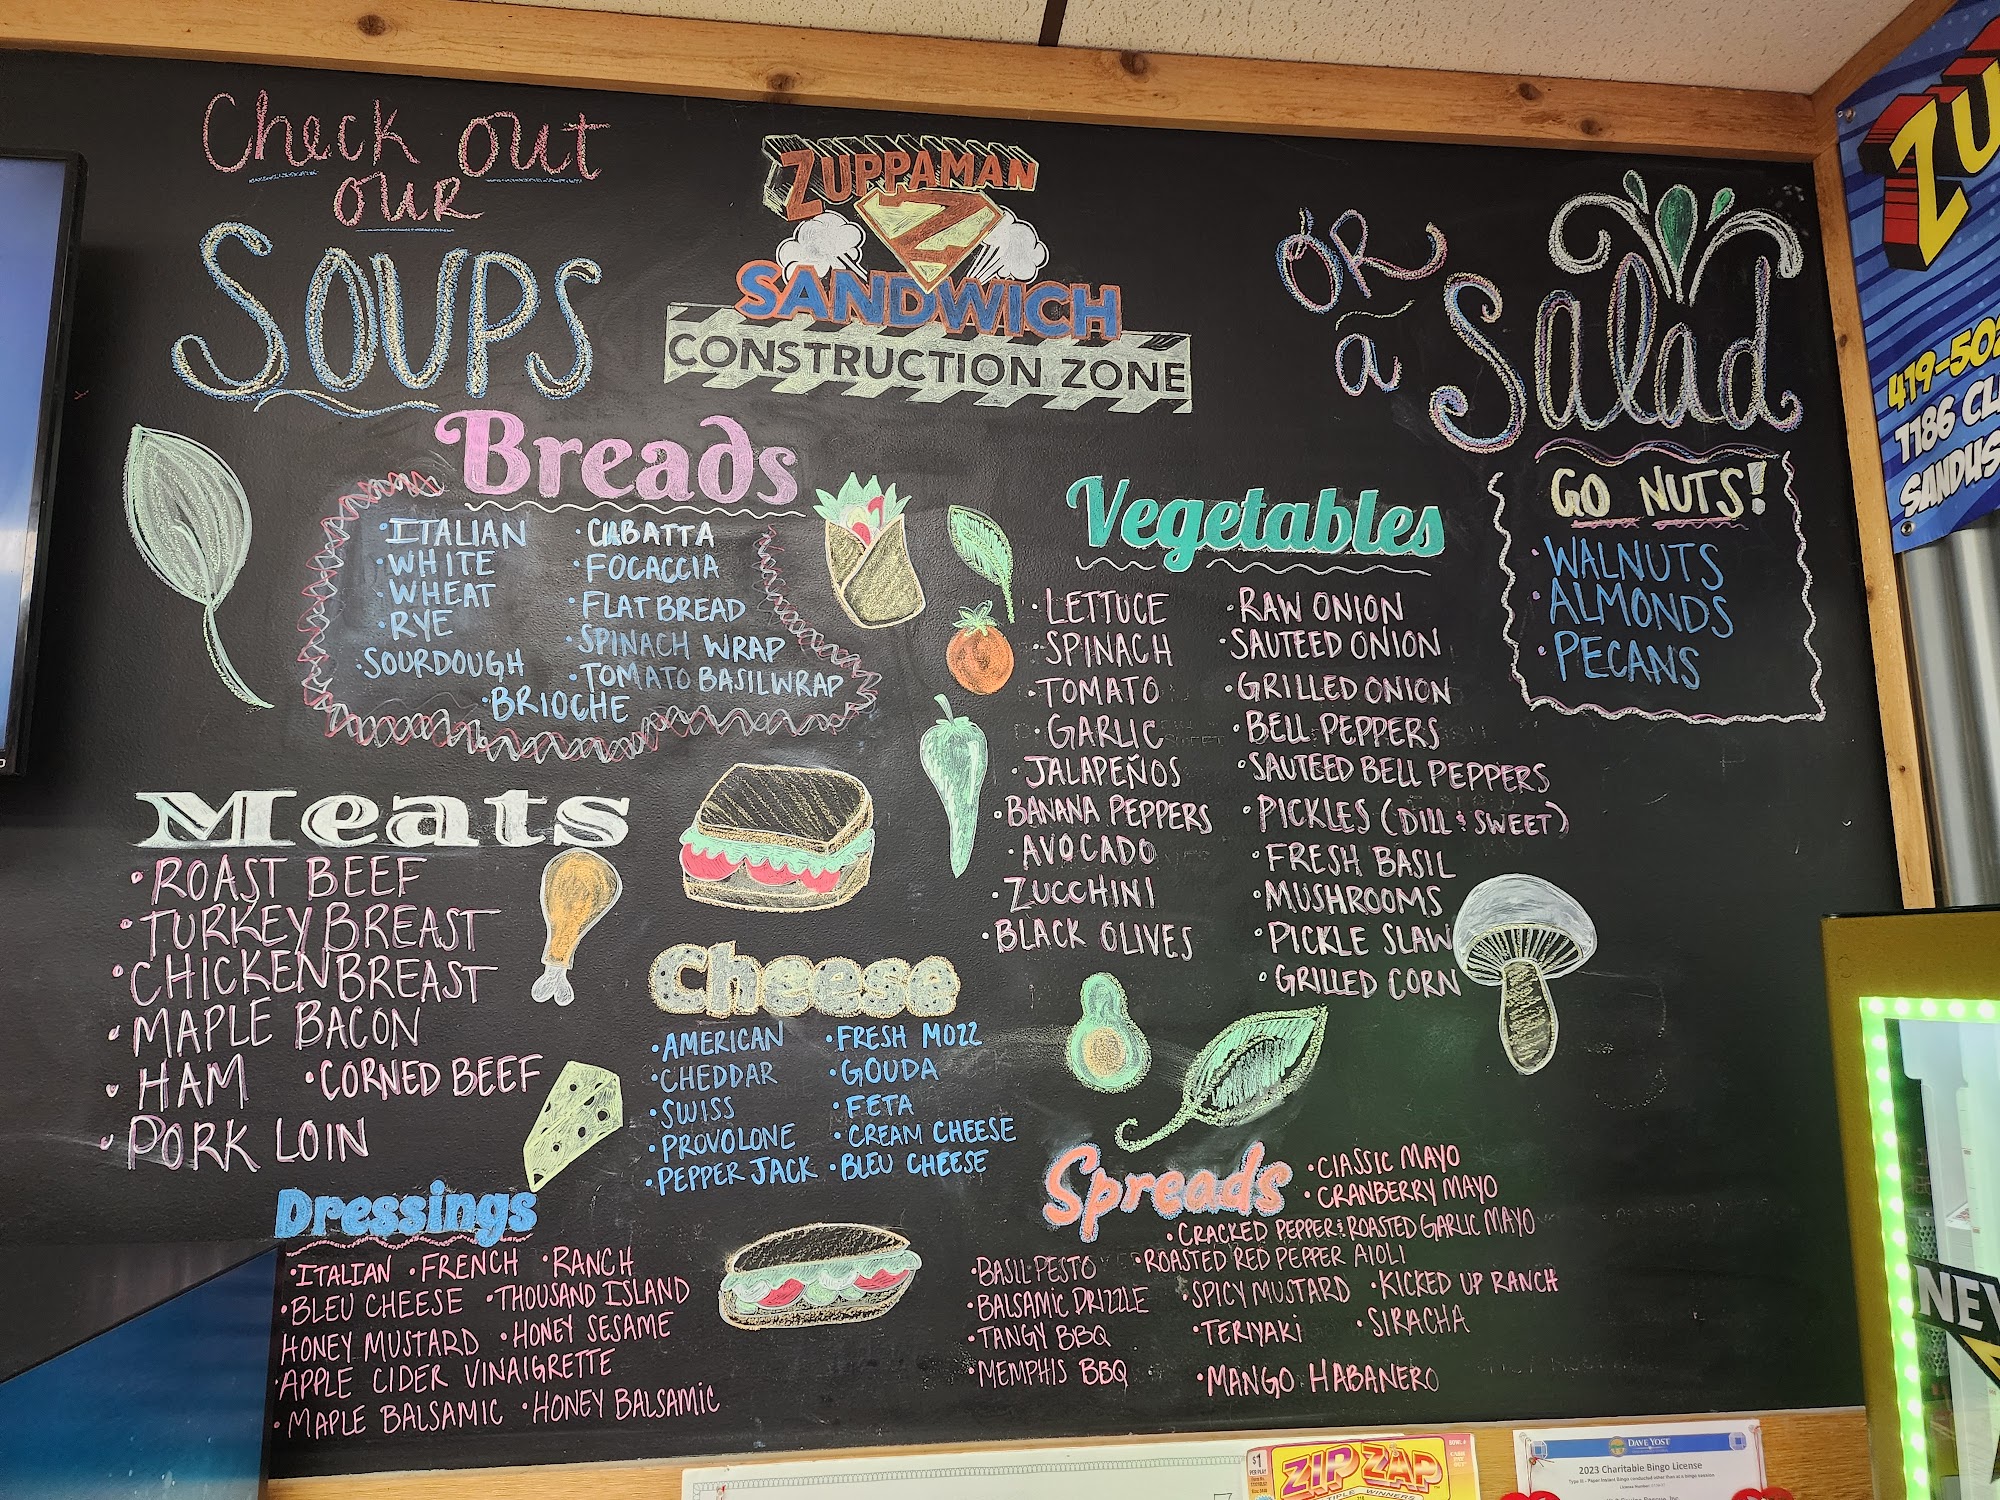 Check out
our
SOUPS
ZUPPAMAN
Z
SANDWICH
CONSTRUCTION ZONE
OR
a
Salad
GO NUTS!
• WALNUTS
• ALMONDS
• PECANS
Breads
• ITALIAN
• WHITE
• WHEAT
• RYE
• SOURDOUGH
• BRIOCHE
• CIABATTA
• FOCACCIA
• FLAT BREAD
• SPINACH WRAP
• TOMATO BASIL WRAP
Vegetables
• LETTUCE
• SPINACH
• TOMATO
• GARLIC
• JALAPEÑOS
• BANANA PEPPERS
• AVOCADO
• ZUCCHINI
• BLACK OLIVES
• RAW ONION
• SAUTEED ONION
• GRILLED ONION
• BELL PEPPERS
• SAUTEED BELL PEPPERS
• PICKLES (DILL & SWEET)
• FRESH BASIL
• MUSHROOMS
• PICKLE SLAW
• GRILLED CORN
Meats
• ROAST BEEF
• TURKEY BREAST
• CHICKEN BREAST
• MAPLE BACON
• HAM • CORNED BEEF
• PORK LOIN
Cheese
• AMERICAN
• CHEDDAR
• SWISS
• PROVOLONE
• PEPPER JACK
• FRESH MOZZ
• GOUDA
• FETA
• CREAM CHEESE
• BLEU CHEESE
Dressings
• ITALIAN • FRENCH • RANCH
• BLEU CHEESE • THOUSAND ISLAND
HONEY MUSTARD • HONEY SESAME
• APPLE CIDER VINAIGRETTE
• MAPLE BALSAMIC • HONEY BALSAMIC
Spreads
• CLASSIC MAYO
• CRANBERRY MAYO
• CRACKED PEPPER & ROASTED GARLIC MAYO
• BASIL PESTO • ROASTED RED PEPPER AIOLI
• BALSAMIC DRIZZLE • SPICY MUSTARD • KICKED UP RANCH
• TANGY BBQ • TERIYAKI • SIRACHA
• MEMPHIS BBQ • MANGO HABANERO
ZU
419-502
1186 CL
SANDUS
NEW
$1
PER PLAY
ZIP ZAP
MULTIPLE WINNERS
DAVE YOST
2023 Charitable Bingo License